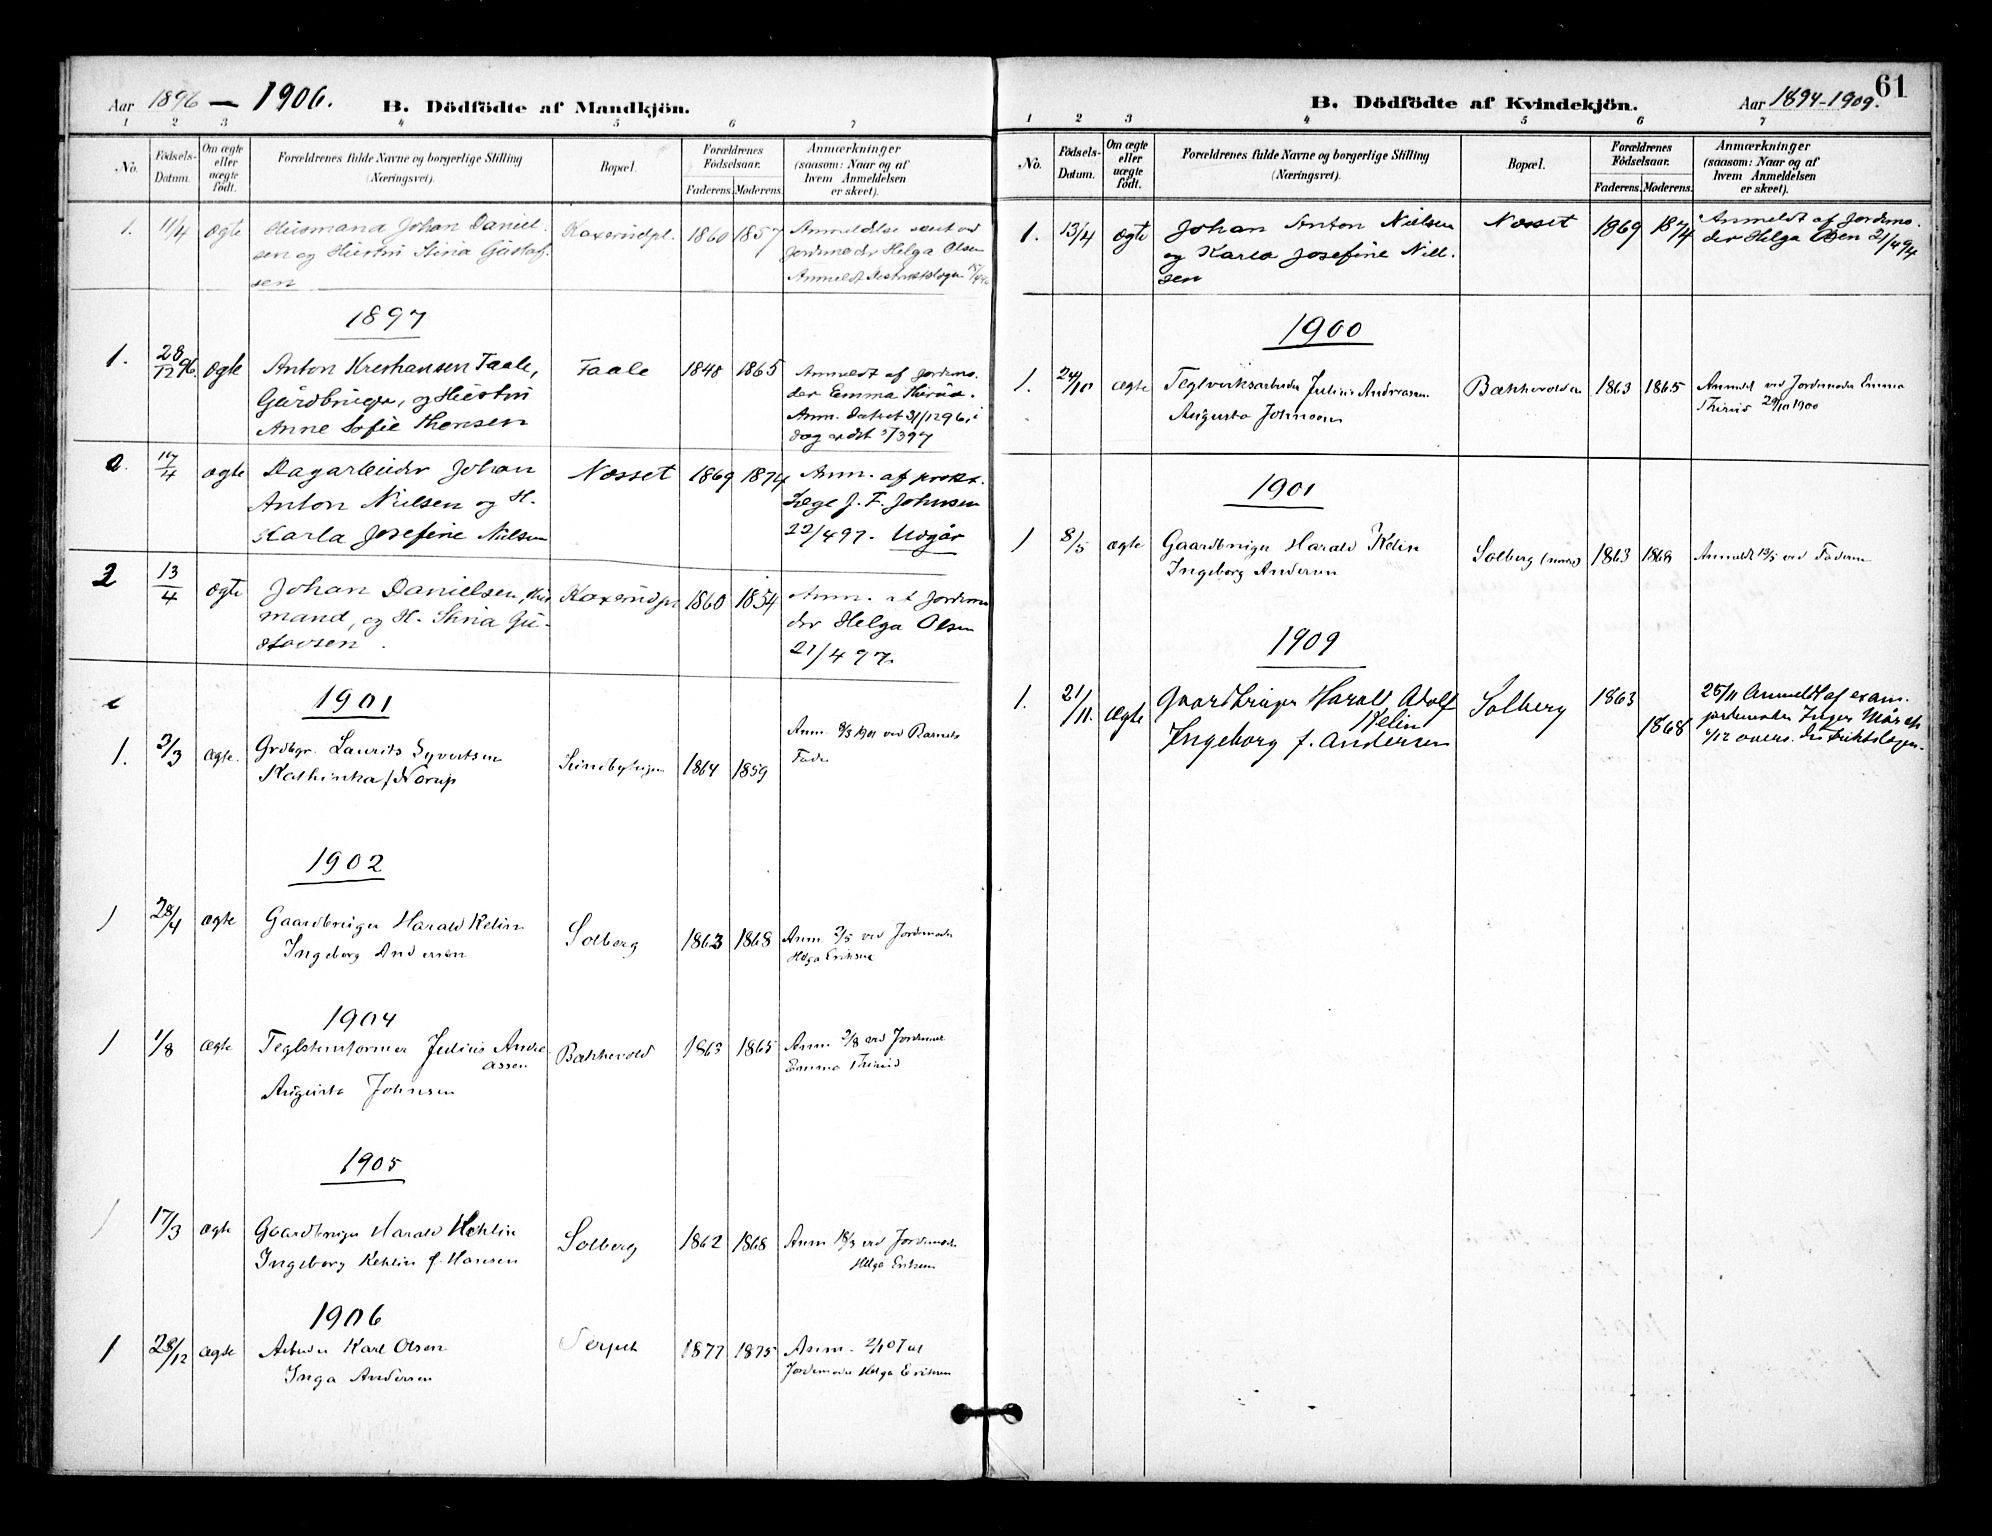 Aar 1896 — 1906. B. Dödfödte af Mandkjön.
1 2 3 4 5 6 7
No. Födsels-Datum. Om ægte eller uægte födt. Forældrenes fulde Navne og borgerlige Stilling (Næringsvei). Bopæl. Forældrenes Födselsaar. Faderens. Moderens. Anmærkninger (saasom: Naar og af hvem Anmeldelsen er skeet).
1. 11/4 ægte Husmand Johan Daniel- Kaxerudpl. 1860 1857 Anmeldelse sent ved
sen og Hustru Stina Gustaf- Jordmoder Helga Olsen
sen Anmeldt
1897
1. 28/12 96. ægte Anton Kristiansen Taale, Faale 1848 1865 Anmeldt af Jordmo-
Gårdbruger, og Hustru der Emma
Anne Sofie Thensen Anm. Datert 31/12 96, i
dag
2. 17/4 ægte Dagarbeider Johan Næsset 1869 1874 Anm. af prakt.
Anton Nielsen og H. Læge J. F. Johnsen
Karla Josefine Nielsen 22/4 97. Udgår
2 13/4 ægte Johan Danielsen, Hus- Kaxerudpl 1860 1854 Anm. af Jordmo
mand, og H. Stina Gu- der Helga Olsen
stavsen. 21/4 97.
1901
1. 3/3 ægte. Grdbgr. Laurits Syvertsen 1864 1859 Anm. 8/3 1901 ved Barnets
Kathinka f. Norup Fader
1902
1 28/4 ægte Gaardbruger Harald Kelin Solberg 1863 1868 Anm 2/5 ved Jordmoder
Ingeborg Andersen Helga Eriksen
1904
1 1/8 ægte Teglstensformer Julius Andre- Bækkevold 1863 1865 Anm 2/8 ved Jordmoder
assen Emma Thirud
Augusta Johnsen
1905
1 17/3 ægte Gaardbruger Harald Kehlin Solberg 1862 1868 Anm 18/3 ved Jordmoder
Ingeborg Kehlin f. Hansen Helga Eriksen
1906
1 28/12 ægte Arbeider Karl Olsen 1877 1875 Anm.
Inga Andersen Jordmoder Helga Eriksen
61
B. Dödfödte af Kvindekjön. Aar 1894-1909.
1 2 3 4 5 6 7
No. Födsels-Datum. Om ægte eller uægte födt. Forældrenes fulde Navne og borgerlige Stilling (Næringsvei). Bopæl. Forældrenes Födselsaar. Faderens. Moderens. Anmærkninger (saasom: Naar og af hvem Anmeldelsen er skeet).
1. 13/4 ægte Johan Anton Nielsen Næsset 1869 1874 Anmeldt af Jordmo-
og Karla Josefine Niel- der Helga Olsen 21/4 94
sen
1900
1. 24/10 ægte Teglverksarbeider Julius Andreassen Bækkevolden 1863 1865 Anmeldt ved Jordmoder Emma
Augusta Johnsen Thirud 29/10 1900
1901
1 8/5 ægte Gaardbruger Harald Kelin Solberg (nordre) 1863 1868 Anmeldt 13/5 ved Faderen
Ingeborg Andersen
1909
1. 21/11. ægte Gaardbruger Harald Adolf Solberg 1863 25/11 Anmeldt af exam.
Kelin 1868 jordmoder Inger Mørch
Ingeborg f. Andersen 6/12 overs. distriktslægen.